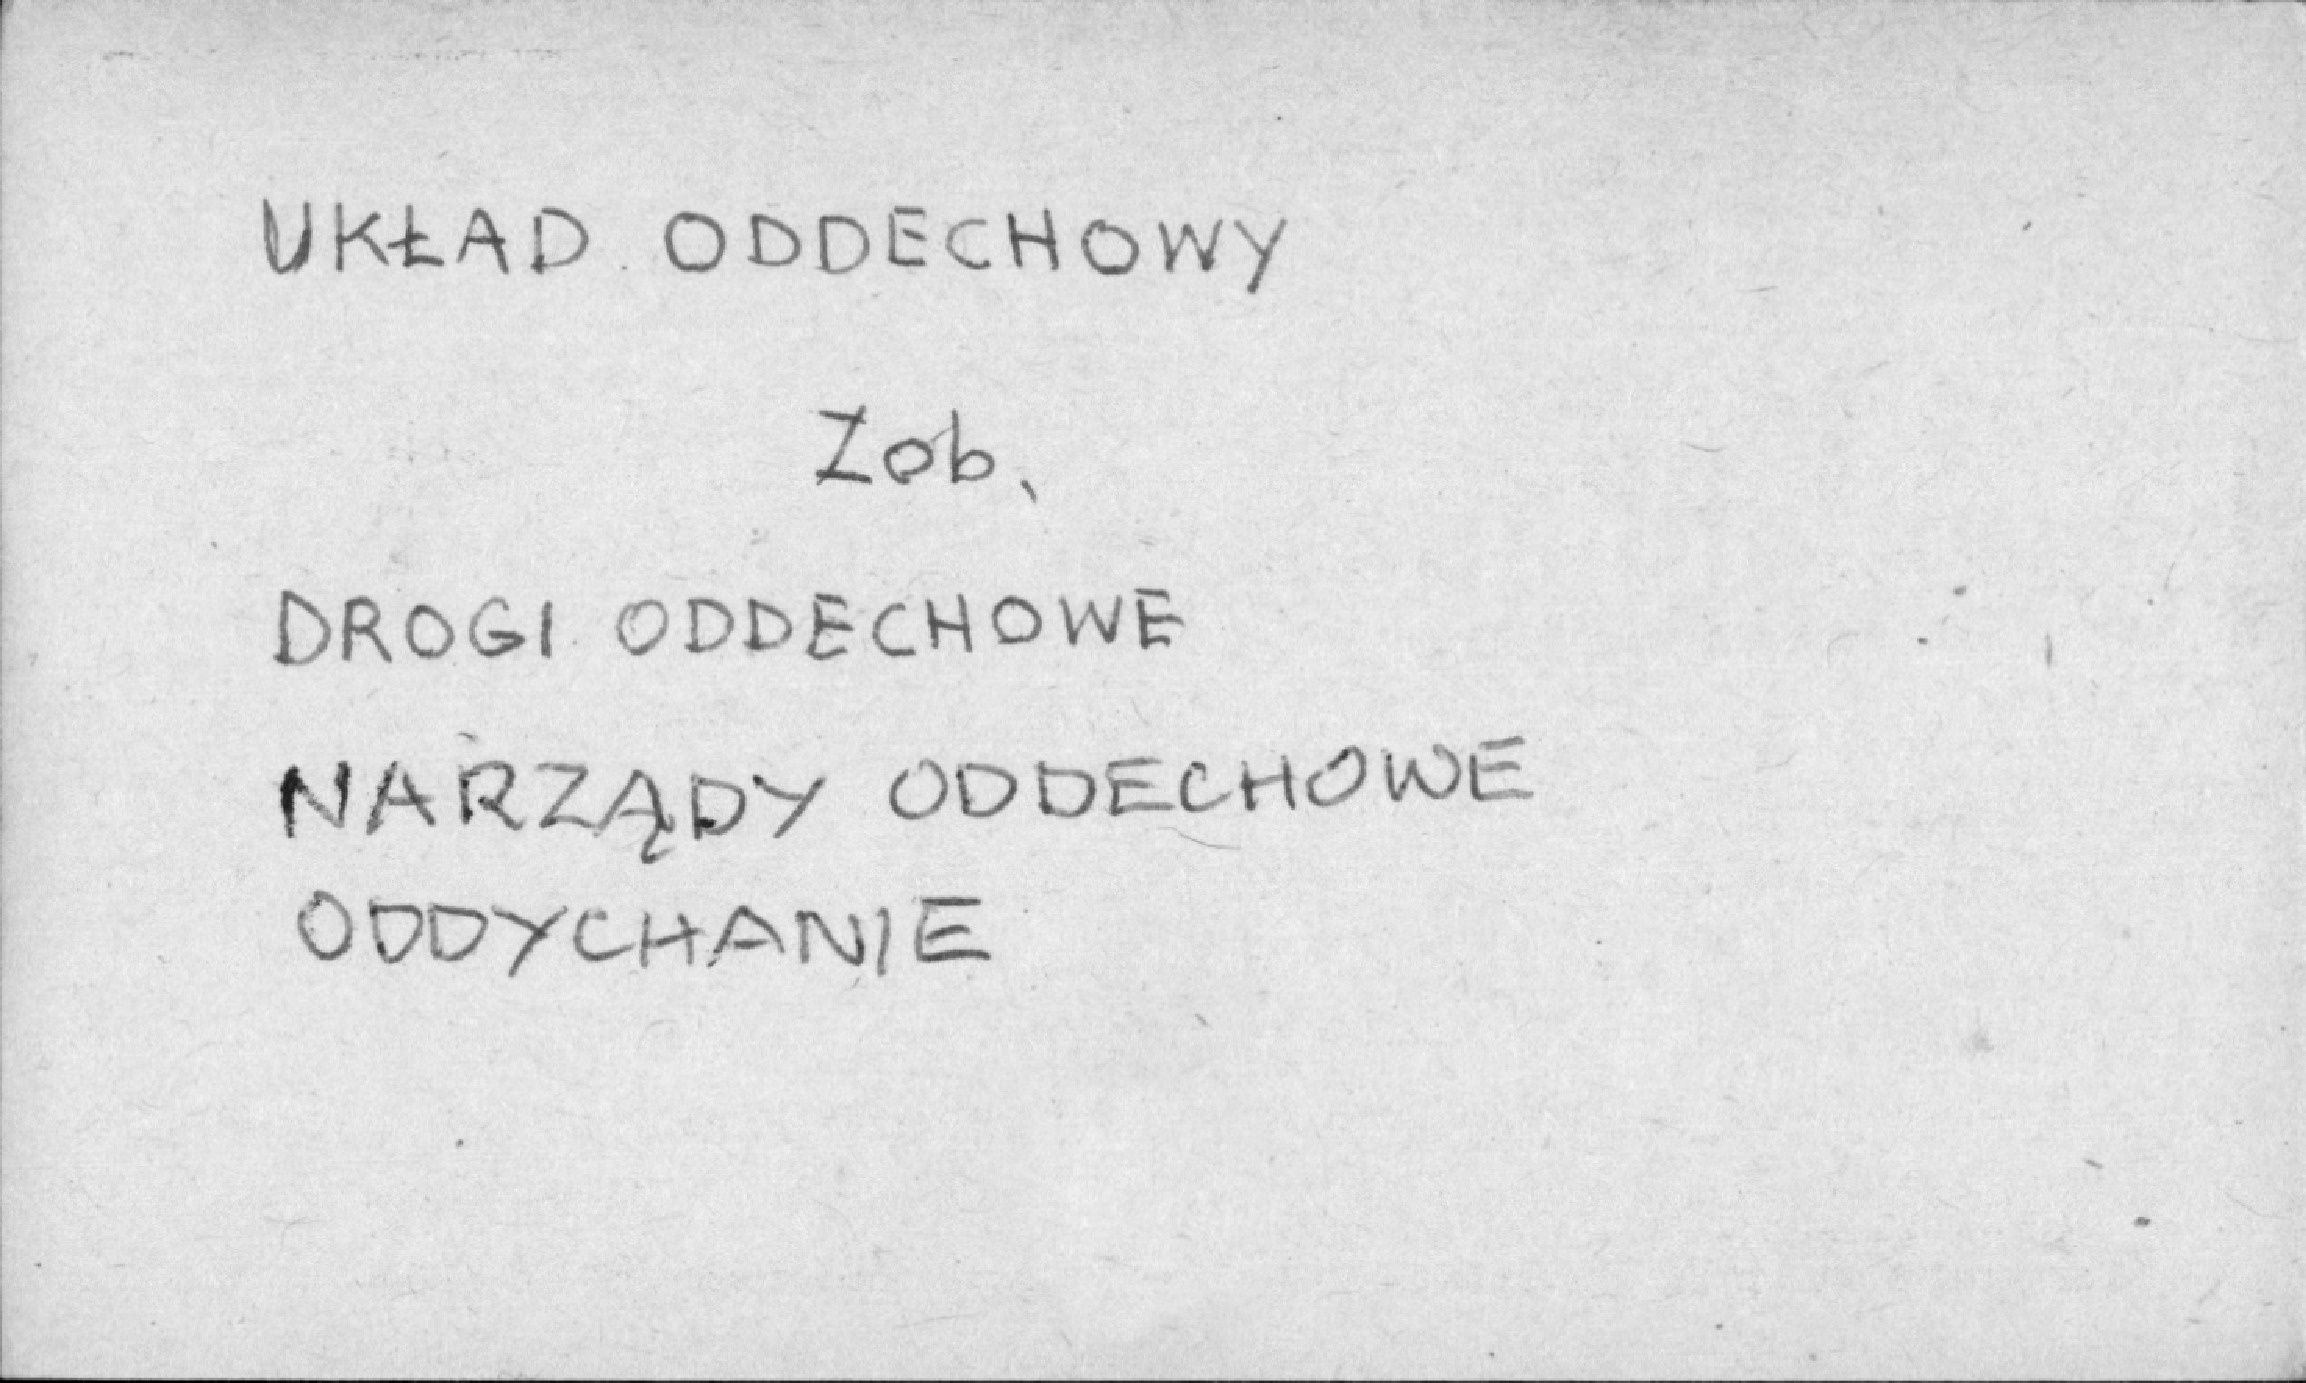 UKŁAD ODDECHOWY
Zob.
DROGI ODDECHOWE
NARZĄDY ODDECHOWE
ODDYCHANIE